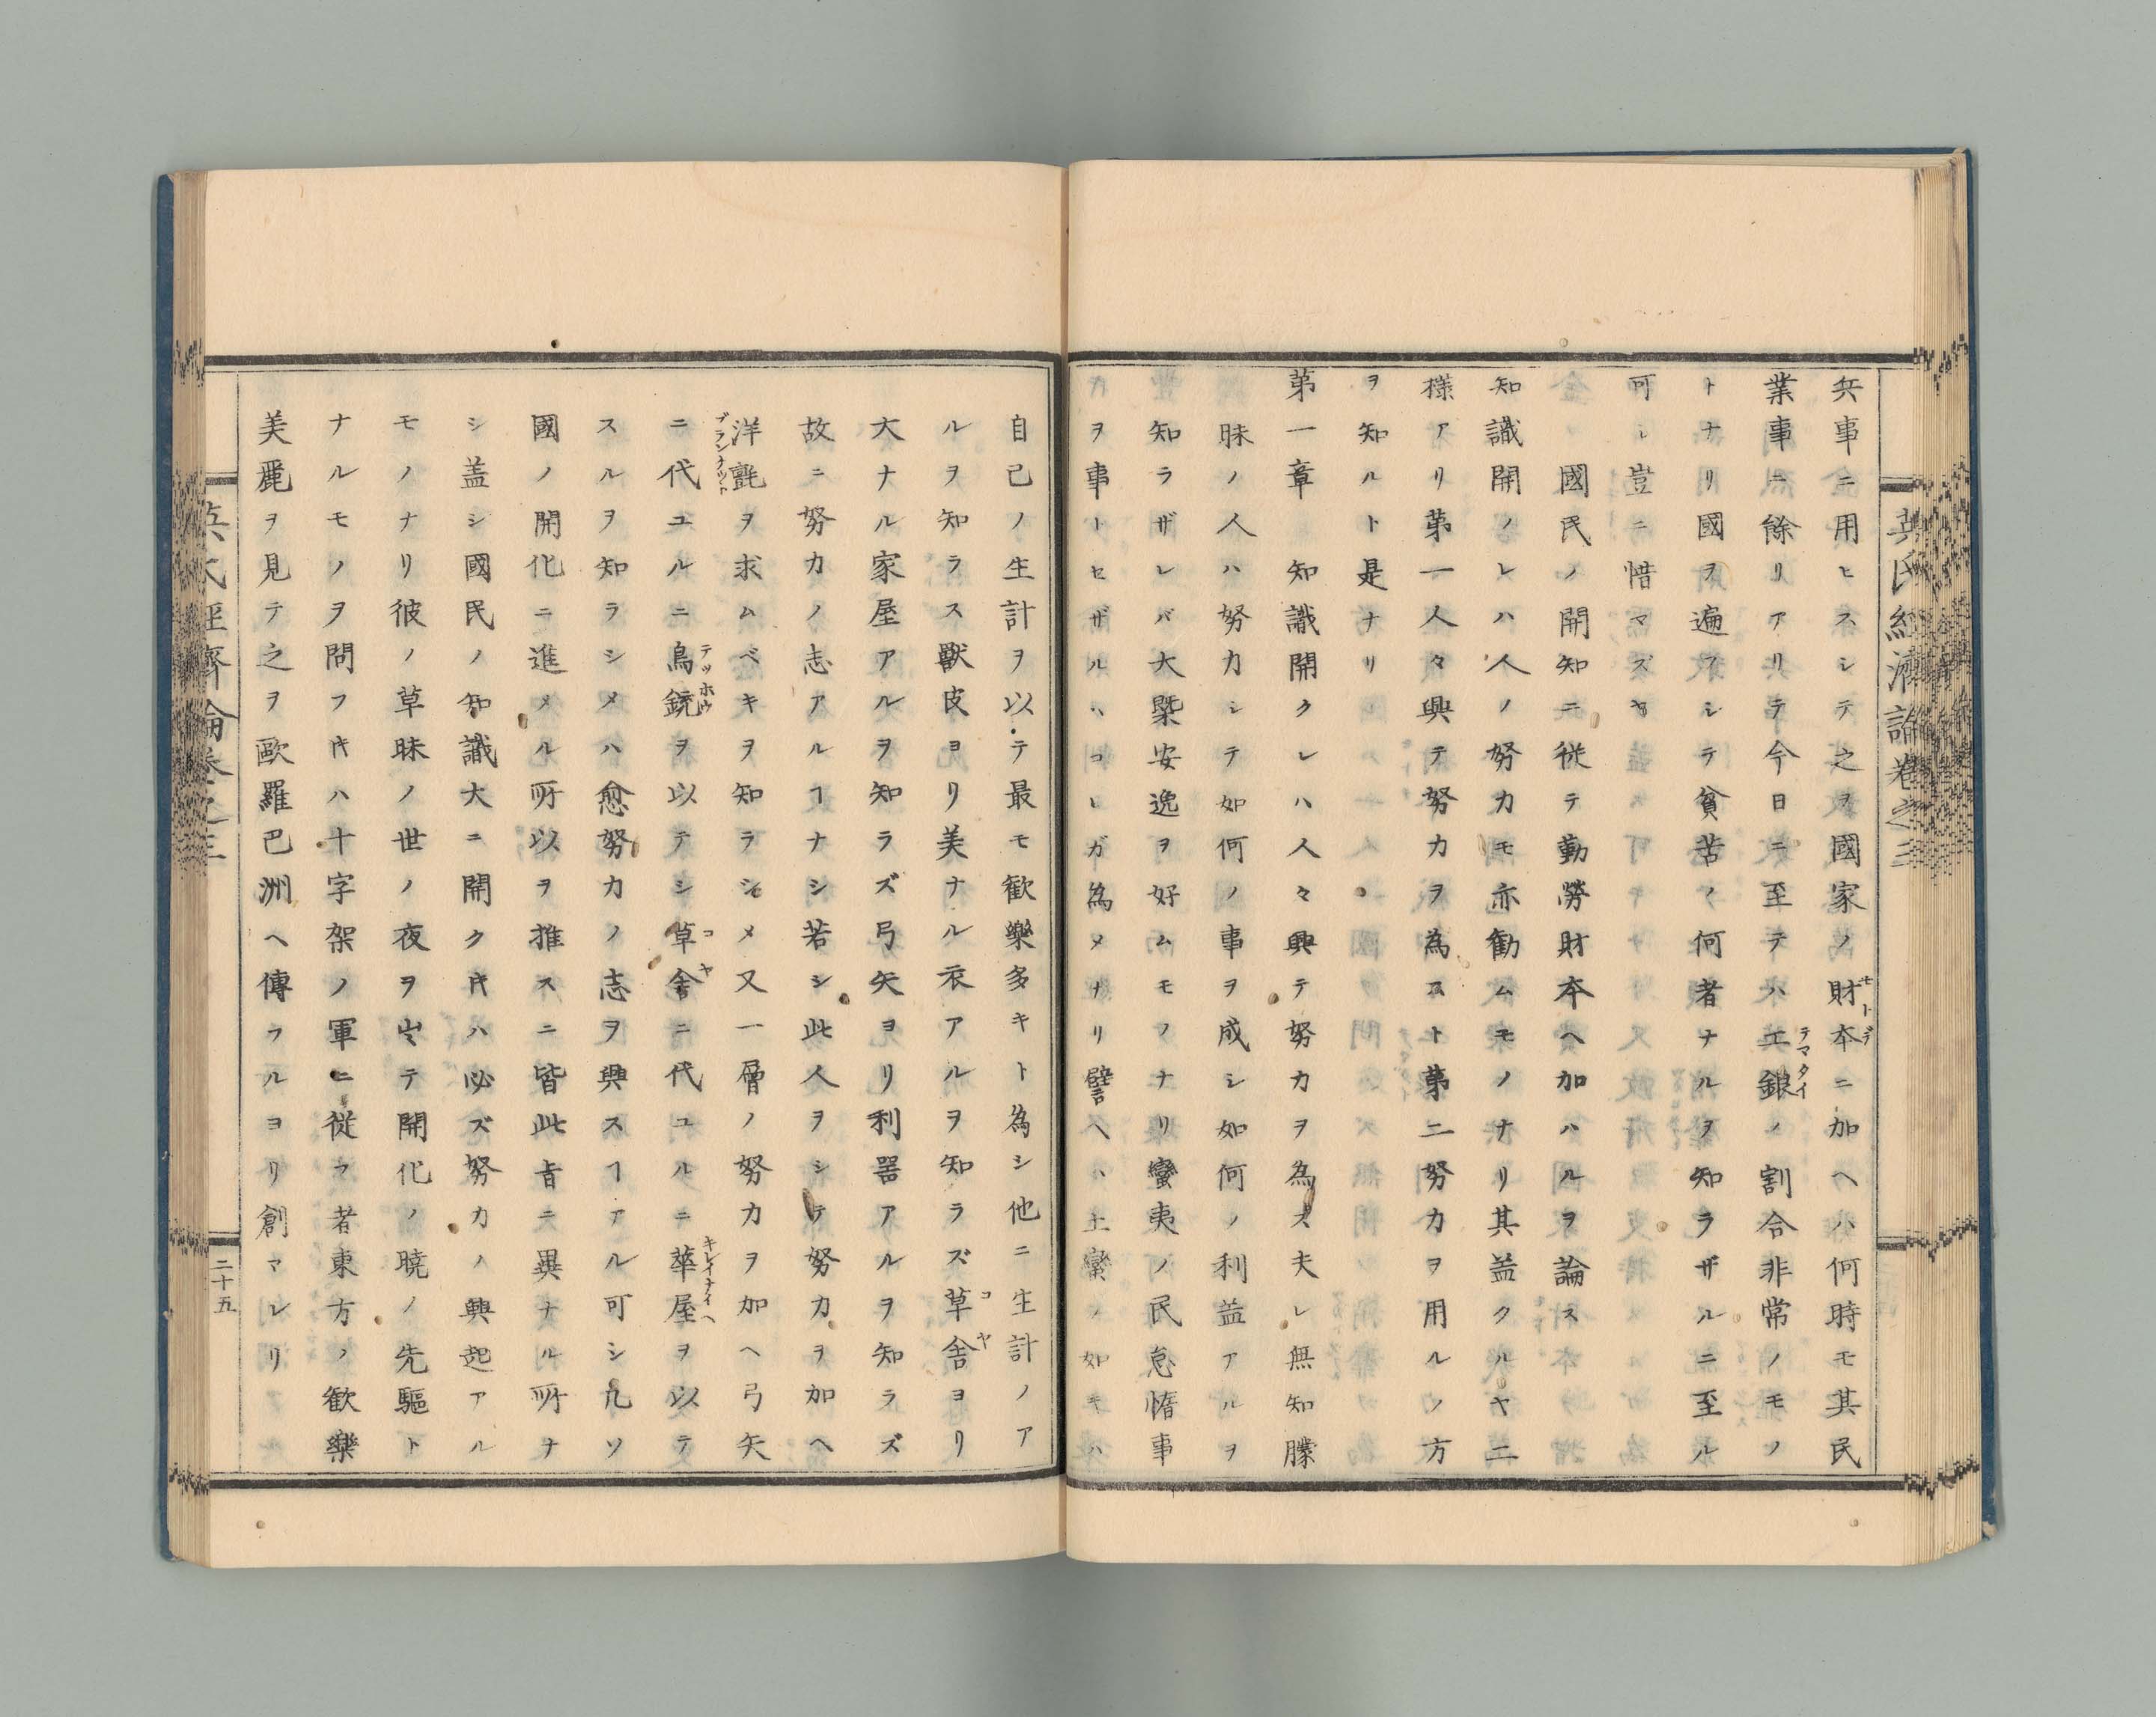 兵氏經濟論卷之三
兵事ニ用ヒスシテ之ヲ國家ノ財本ニ加ヘハ何時モ其民
モトデ
業事ニ餘リアリテ今日ニ至テハ工銀ノ割合非常ノモノ
テマタイ
トナリ國ヲ遍フシテ貧苦ノ何者ナルヲ知ラザルニ至ル
可シ豈ニ惜マズヤ
國民ノ開知ニ従テ勤勞財本ヘ加ハルヲ論ス
知識開ノレハ人ノ努力モ亦勸ムモノナリ其益クルヤ二
様アリ第一人々興テ努力ヲ為スト第二努力ヲ用ルノ方
ヲ知ルト是ナリ
第一章　知識開クレハ人々興テ努力ヲ為ス夫レ無知矇
昧ノ人ハ努力シテ如何ノ事ヲ成シ如何ノ利益アルヲ
知ラザレバ大槩安逸ヲ好ムモノナリ蠻夷ノ民怠惰事
ヲ事トセザルハコレガ為メナリ譬ヘハ土蠻ノ如キハ
自己ノ生計ヲ以テ最モ歓樂多キト為シ他ニ生計ノア
ルヲ知ラス獸皮ヨリ美ナル衣アルヲ知ラズ草舎ヨリ
コヤ
大ナル家屋アルヲ知ラズ弓矢ヨリ利器アルヲ知ラズ
故ニ努力ノ志アルヿナシ若シ此人ヲシテ努力ヲ加ヘ
洋氈ヲ求ムベキヲ知ラシメ又一層ノ努力ヲ加ヘ弓矢
ブランケット
ニ代ユルニ鳥銃ヲ以テシ草舎ニ代ユルニ華屋ヲ以テ
テッホウ
コヤ
キレイナイヘ
スルヲ知ラシメハ愈努力ノ志ヲ興スヿアル可シ凢ソ
國ノ開化ニ進メル所以ヲ推スニ皆此旨ニ異ナル所ナ
シ盖シ國民ノ知識大ニ開ク𪜈ハ必ズ努力ノ興起アル
モノナリ彼ノ草昧ノ世ノ夜ヲテ開化ノ曉ノ先驅ト
ナルモノヲ問フ𪜈ハ十字架ノ軍ニ従フ者東方ノ歓樂
美麗ヲ見テ之ヲ歐羅巴洲ヘ傳フルヨリ創マレリ
兵氏經濟論卷之三
二十五